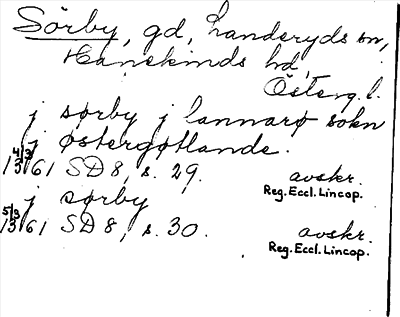 Sörby, gd, Landeryds sn,
Hanekinds hd,
Österg. l.
j sørby j lannarø sokn
j østergøtlande.
4/3 1361 SD 8, s. 29. avskr.
Reg. Eccl. Lincop.
j sørby
5/3 1361 SD 8, s. 30. avskr.
Reg. Eccl. Lincop.